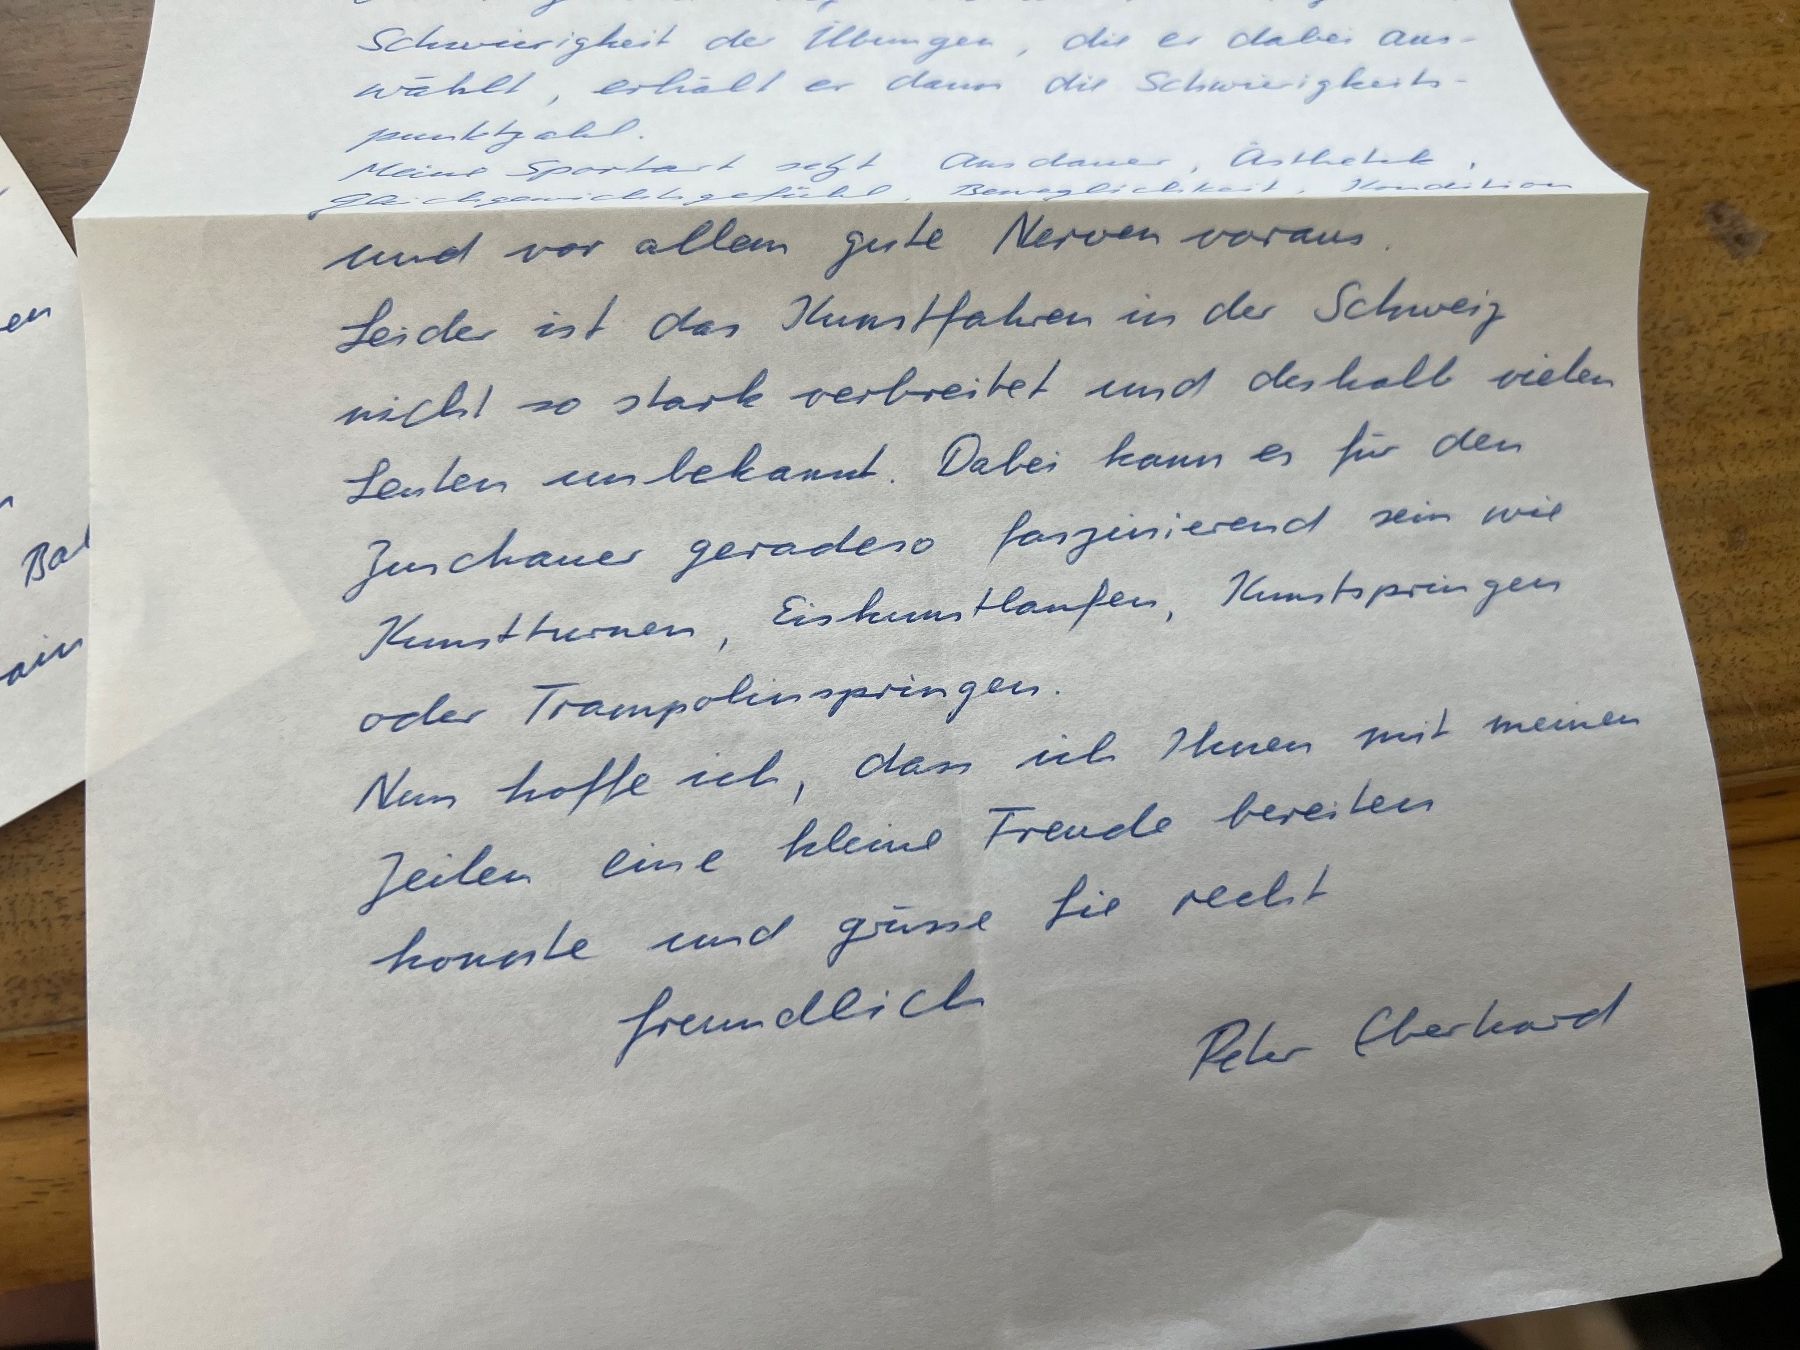 Schwierigkeit der Übungen, die er dabei aus-
wählt, erhält er dann die Schwierigkeits-
punktzahl.
Meine Sportart setzt Ausdauer, Ästhetik,
Gleichgewichtsgefühl, Beweglichkeit, Kondition
und vor allem gute Nerven voraus.
Leider ist das Kunstfahren in der Schweiz
nicht so stark verbreitet und deshalb vielen
Leuten unbekannt. Dabei kann es für den
Zuschauer geradeso faszinierend sein wie
Kunstturnen, Eiskunstlaufen, Kunstspringen
oder Trampolinspringen.
Nun hoffe ich, dass ich Ihnen mit meinen
Zeilen eine kleine Freude bereiten
konnte und grüsse Sie recht
freundlich
Peter Eberhard
en
Bal